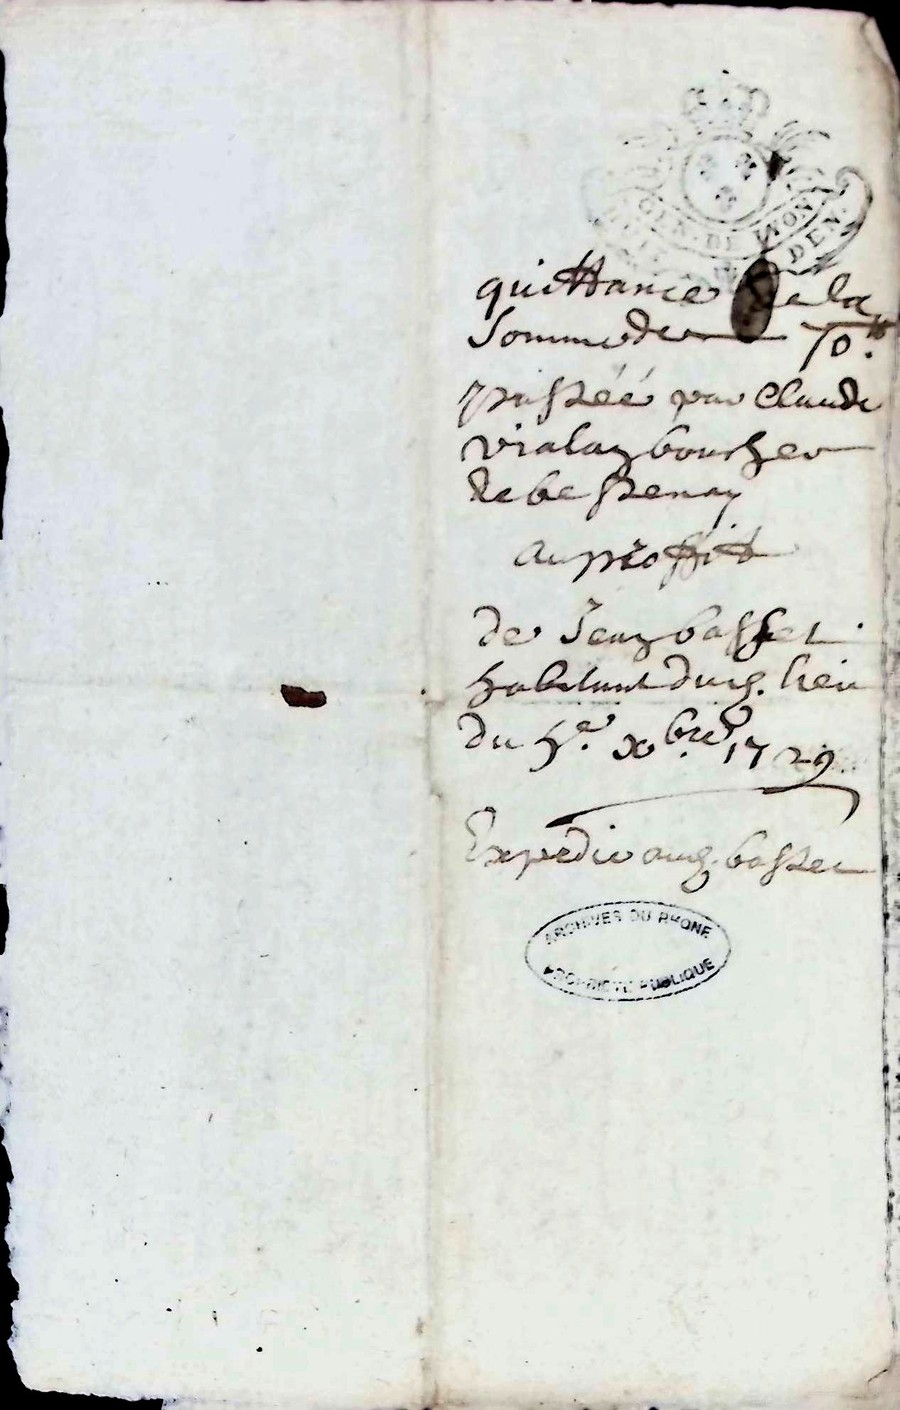 GEN. DE LYON
DEN.
quittance de la
Somme de 70.tt
passéé par Claude
vialay boucher
de bessenay
au proffit
de Jean basset
habitant dud. lieu
du 5.e xbre 1729
Expedié aud. basset
ARCHIVES DU RHONE
PROPRIETE PUBLIQUE